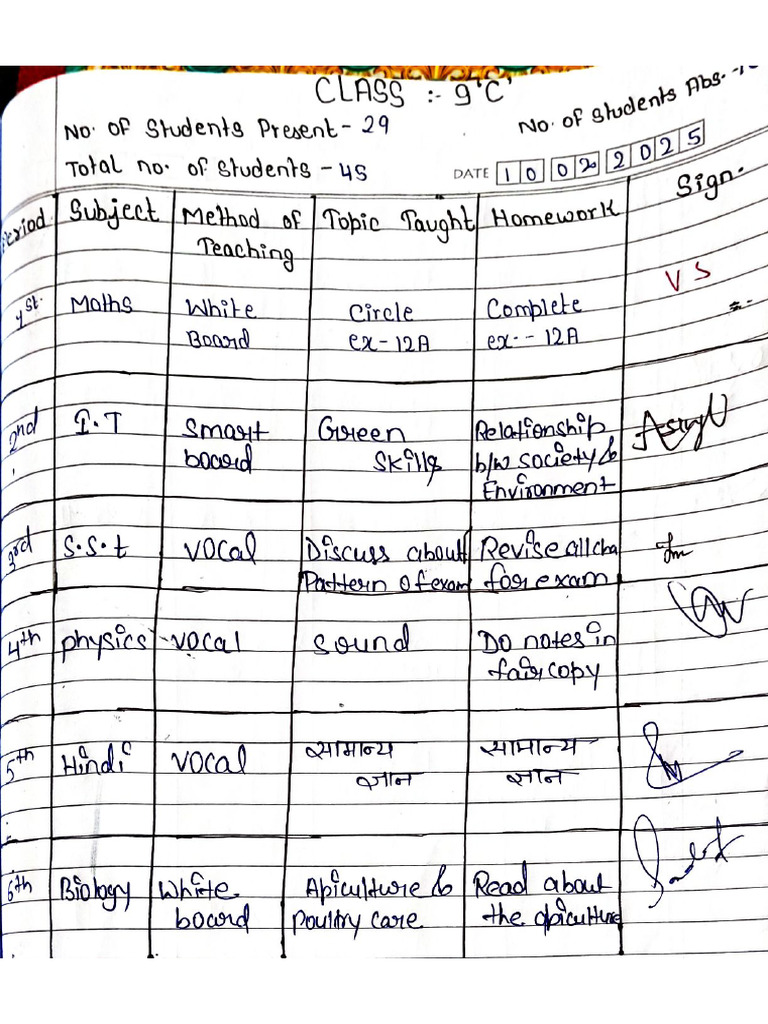 CLASS :- 9'C'
No. of Students Present - 29
No. of Students Abs. -
Total no. of Students - 45
DATE 10 02 2025
Period Subject Method of Teaching Topic Taught Homework Sign.
1st. Maths White Circle Complete
Board ex-12A ex-- 12A
VS
2nd I.T Smart Green Relationship
board Skills b/w society &
Environment
3rd S.S.t VOCAL Discuss about Revise all cha
Pattern of exam for exam
4th physics VOCAL Sound Do notes in
fair copy
5th Hindi VOCAL सामान्य सामान्य
ज्ञान ज्ञान
6th Biology White Apiculture & Read about
board Poultry care the apiculture